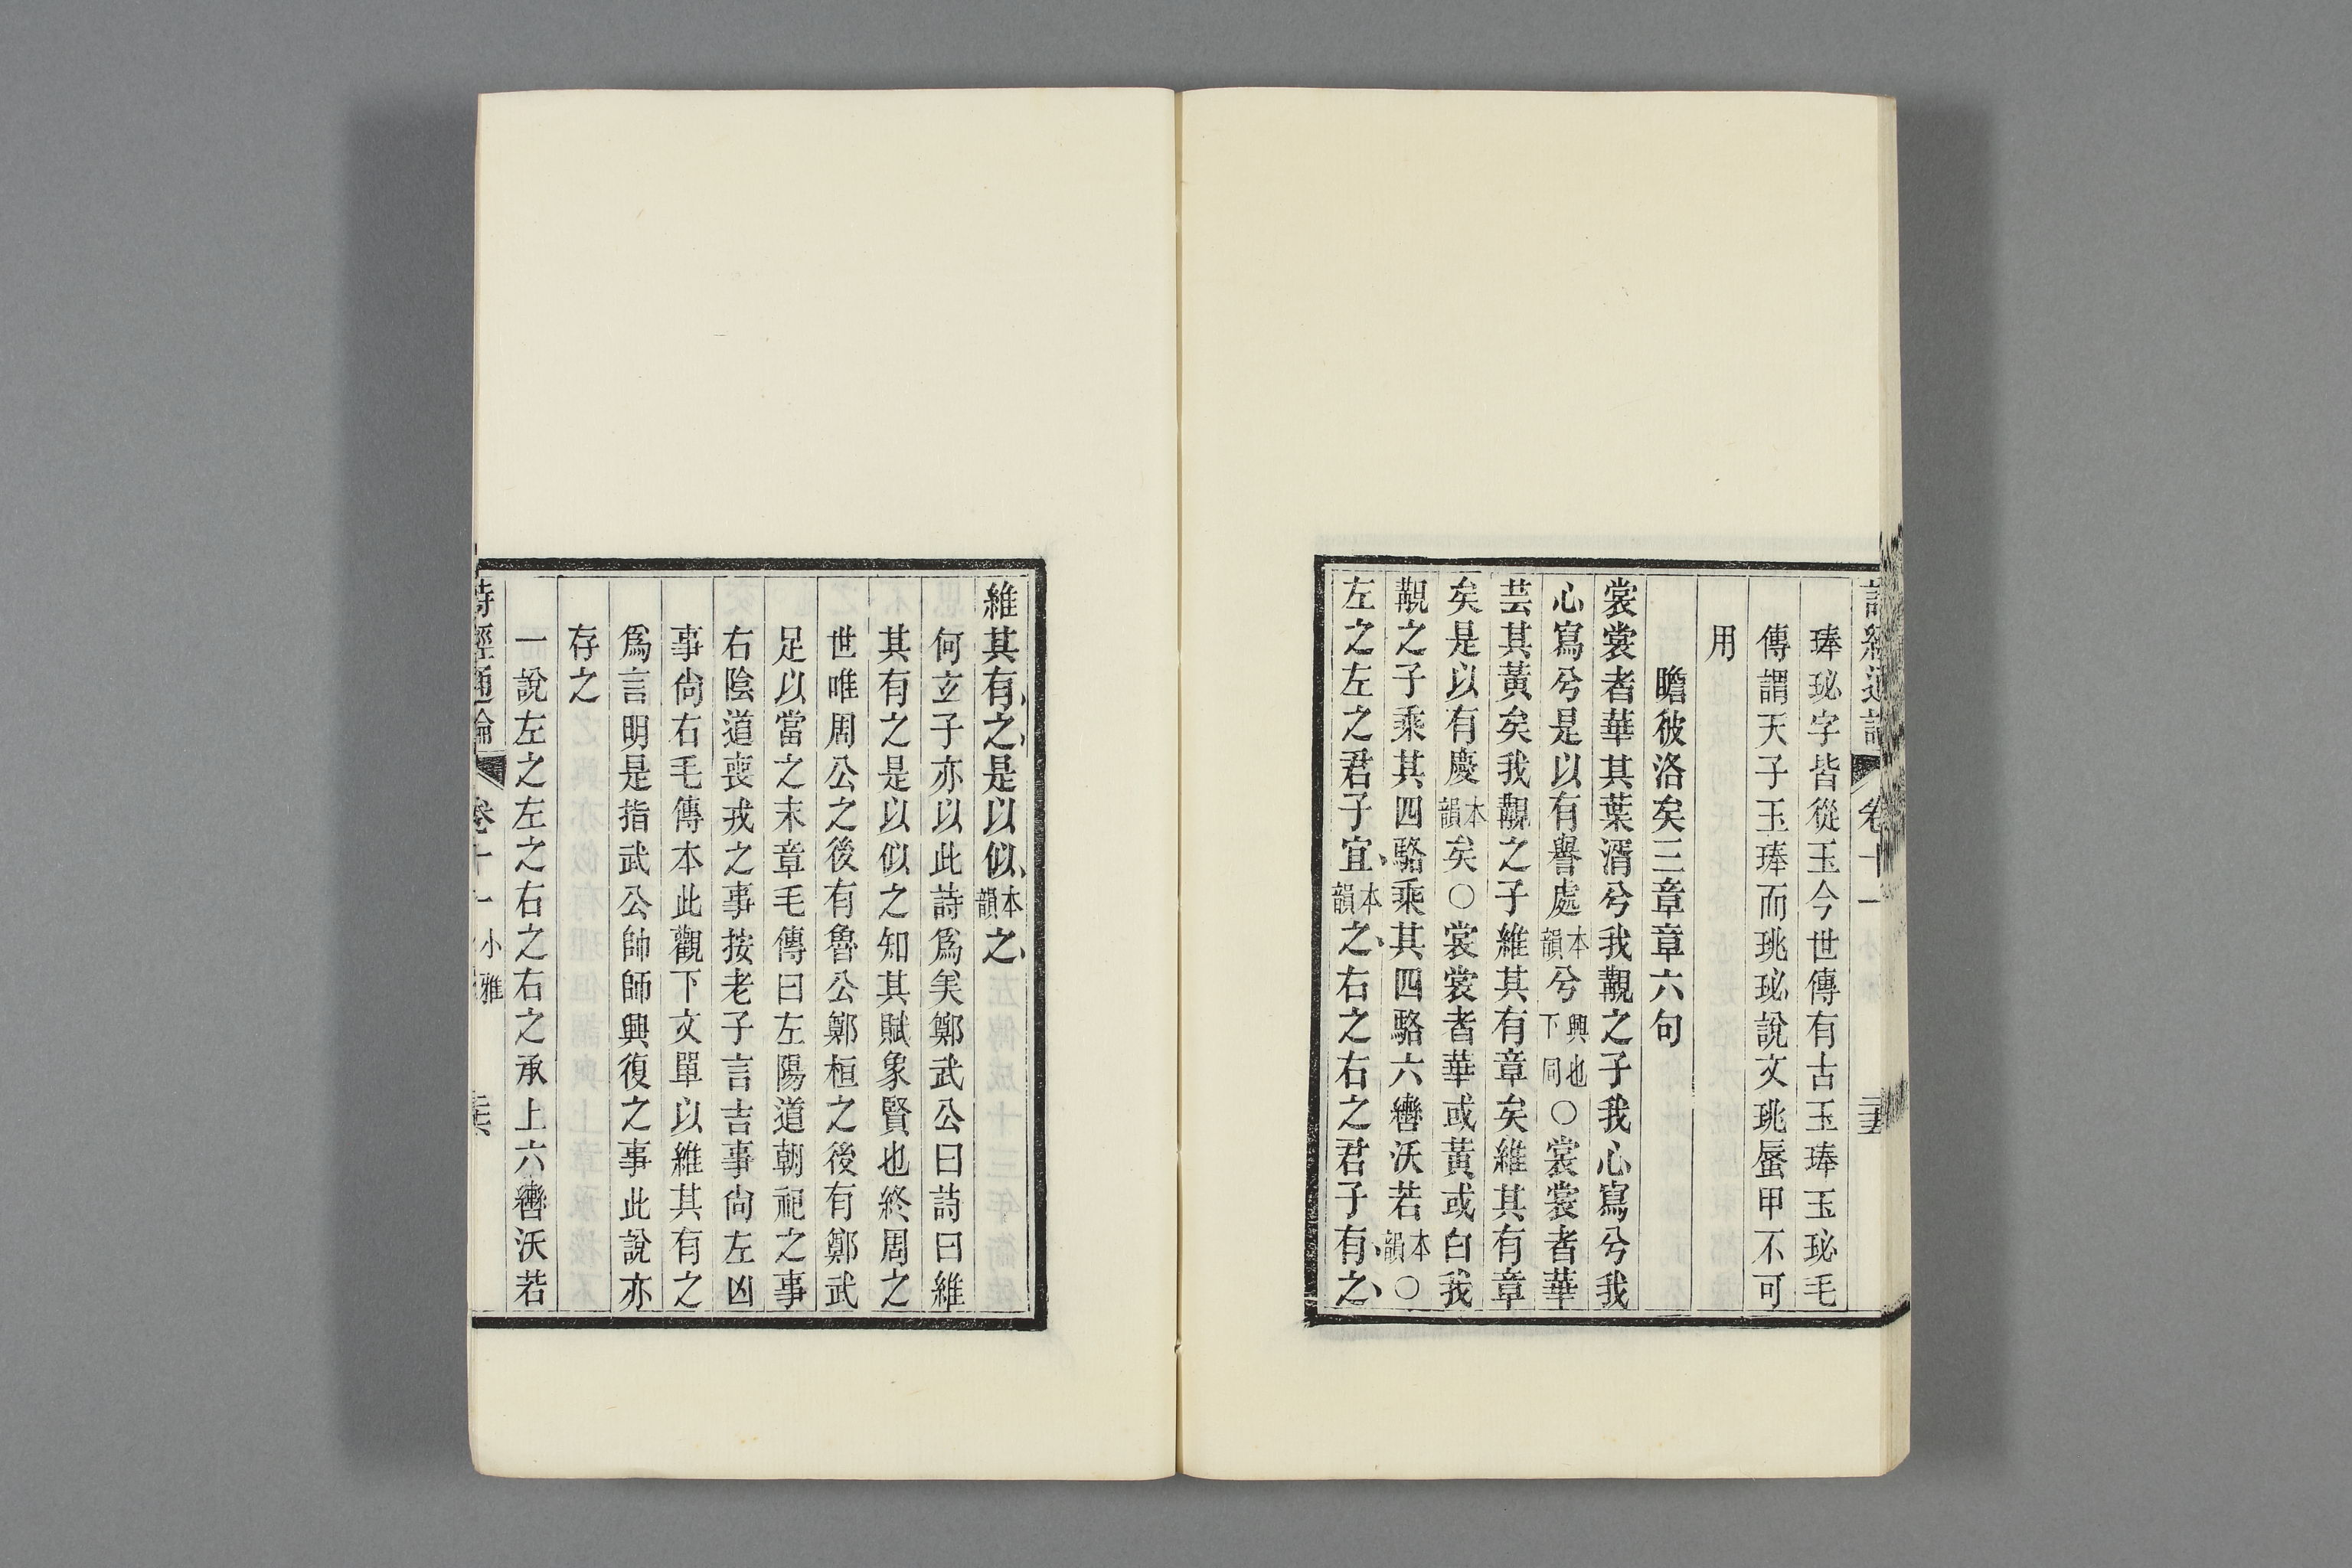 詩經通論 卷十一
琫珌字皆從玉今世傳有古玉琫玉珌毛
傳謂天子玉琫而珧珌說文珧蜃甲不可
用
瞻彼洛矣三章章六句
裳裳者華其葉湑兮我覯之子我心寫兮我
心寫兮是以有譽處本韻兮興也下同○裳裳者華
芸其黃矣我覯之子維其有章矣維其有章
矣是以有慶本韻矣○裳裳者華或黃或白我
覯之子乘其四駱乘其四駱六轡沃若本韻○
左之左之君子宜本韻之右之右之君子有之
維其有之是以似本韻之
何玄子亦以此詩爲美鄭武公曰詩曰維
其有之是以似之知其賦象賢也終周之
世唯周公之後有魯公鄭桓之後有鄭武
足以當之末章毛傳曰左陽道朝祀之事
右陰道喪戎之事按老子言吉事尙左凶
事尙右毛傳本此觀下文單以維其有之
爲言明是指武公帥師興復之事此說亦
存之
一說左之左之右之右之承上六轡沃若
詩經通論 卷十一 小雅